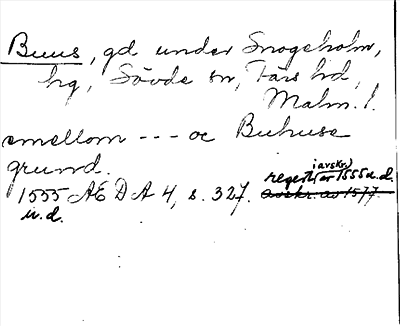 Buus, gd under Snogeholm,
hg, Sövde sn, Färs hd,
Malm. l.
emellom --- oc Buhuse
grund.
(avskr.)
1555 ÆDA 4, s. 327. regest av 1555 u.d.
u.d. avskr. av 1577.